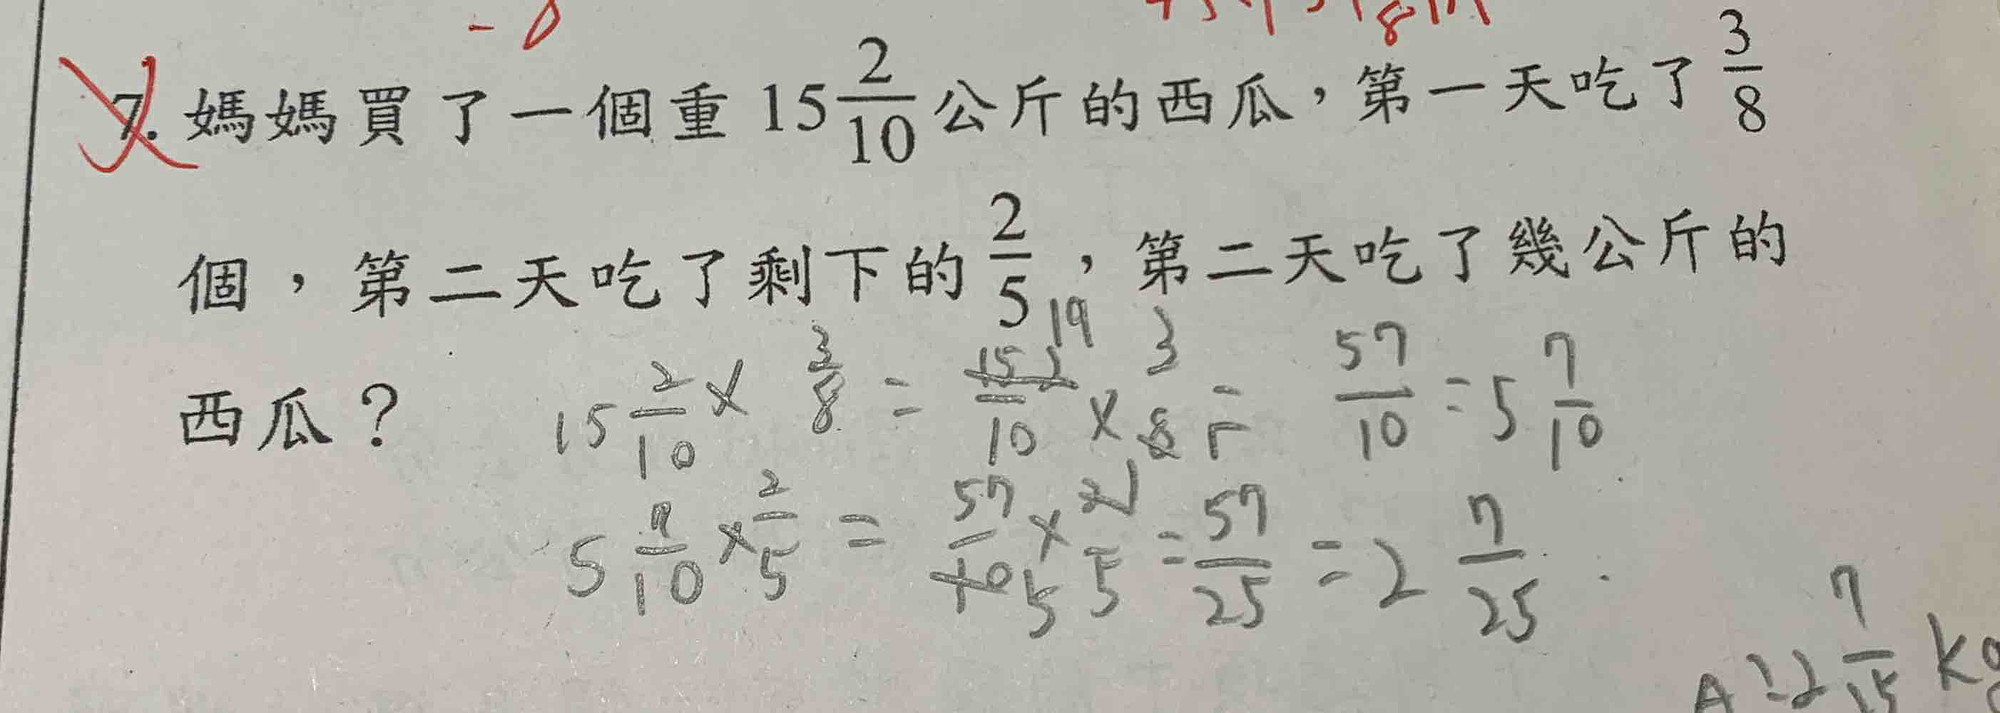 -8
7. 媽媽買了一個重 15 2/10 公斤的西瓜，第一天吃了 3/8
個，第二天吃了剩下的 2/5，第二天吃了幾公斤的
西瓜？
15 2/10 × 3/8 = 152/10 19 × 3/8 = 57/10 = 5 7/10
5 7/10 × 2/5 = 57/10 5 × 2/5 1 = 57/25 = 2 7/25
A: 2 7/15 kg